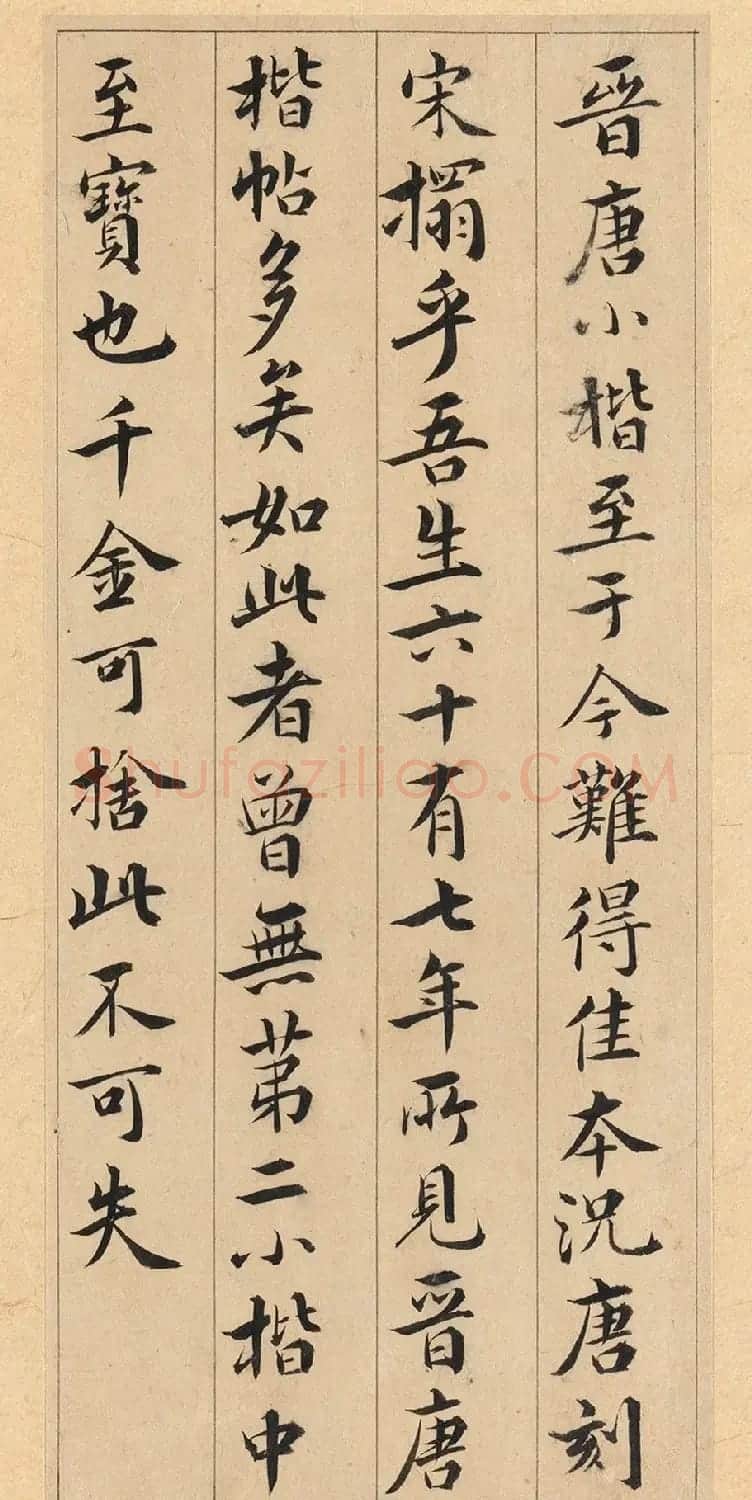 晉唐小楷至于今難得佳本况唐刻
宋搨乎吾生六十有七年所見晉唐
楷帖多矣如此者曾無苐二小楷中
至寳也千金可捨此不可失
Shufaziliao.COM